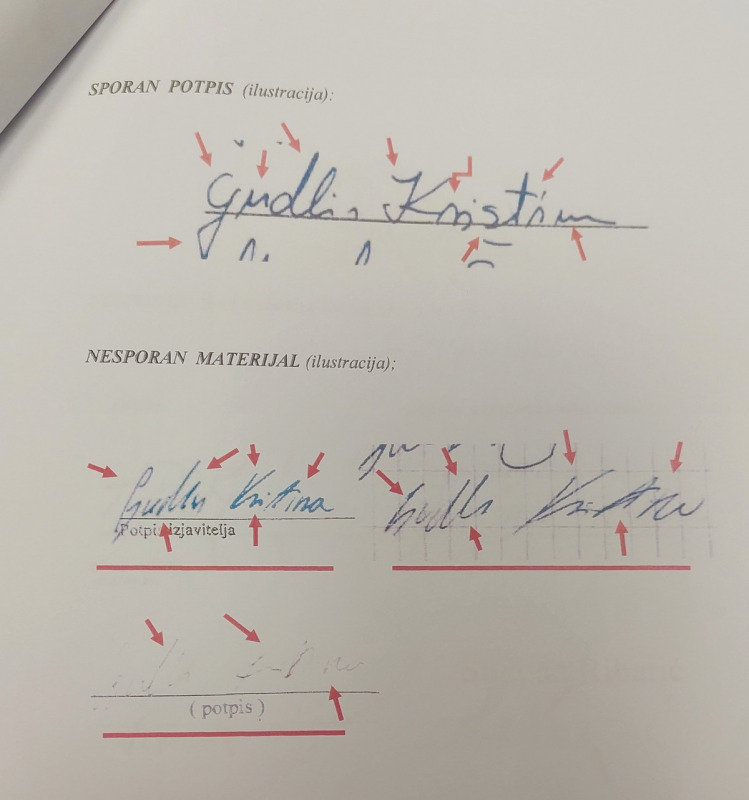 SPORAN POTPIS (ilustracija):
Gudlin Kristina
NESPORAN MATERIJAL (ilustracija);
Gudlin Kristina
Potpis izjavitelja
Kristina
( potpis )